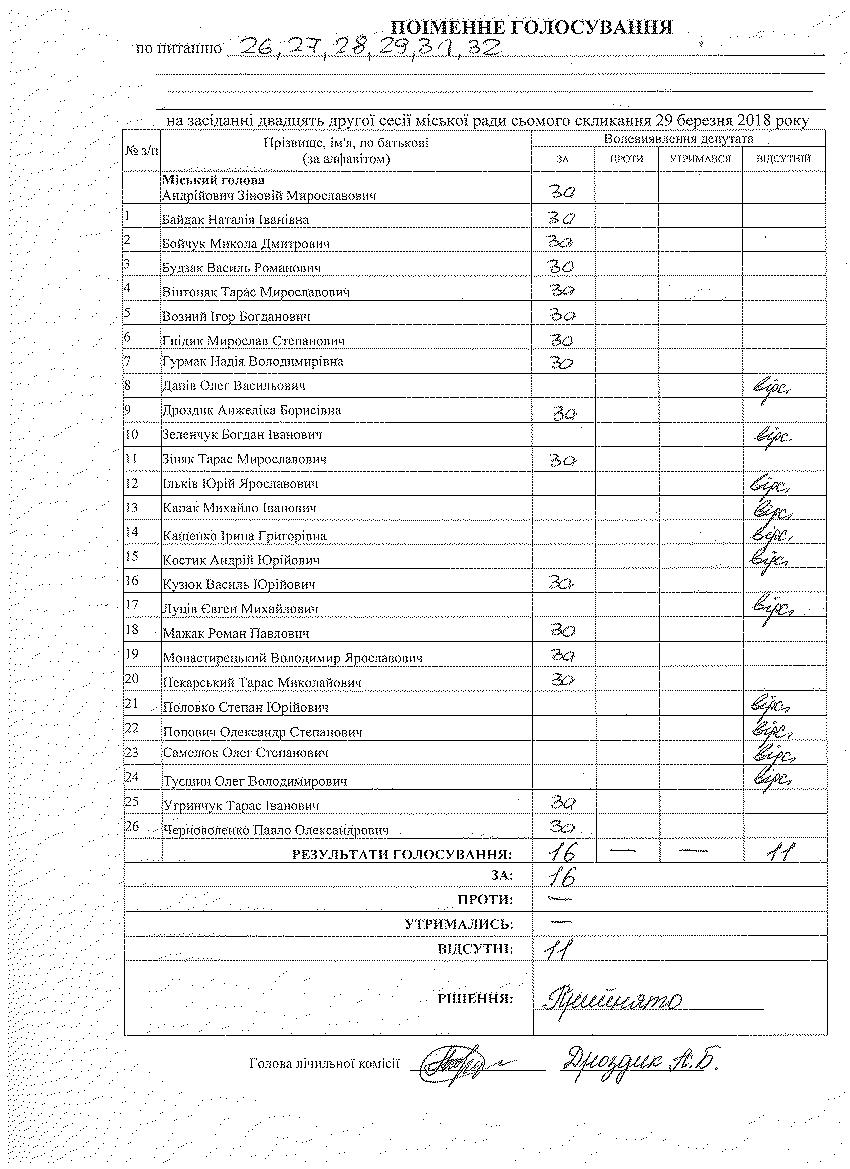 ПОІМЕННЕ ГОЛОСУВАННЯ
по питанню 26, 27, 28, 29, 31, 32
на засіданні двадцять другої сесії міської ради сьомого скликання 29 березня 2018 року
№ з/п Прізвище, ім'я, по батькові (за алфавітом) Волевиявлення депутата
ЗА ПРОТИ УТРИМАВСЯ ВІДСУТНІЙ
Міський голова
Андрійович Зіновій Мирославович за
1 Байдак Наталія Іванівна за
2 Бойчук Микола Дмитрович за
3 Будзак Василь Романович за
4 Вінтоняк Тарас Мирославович за
5 Возний Ігор Богданович за
6 Гнідик Мирослав Степанович за
7 Гурмак Надія Володимирівна за
8 Данів Олег Васильович відс.
9 Дроздик Анжеліка Борисівна за
10 Зеленчук Богдан Іванович відс.
11 Зіняк Тарас Мирославович за
12 Ільків Юрій Ярославович відс.
13 Карак Михайло Іванович відс.
14 Кащенко Ірина Григорівна відс.
15 Костик Андрій Юрійович відс.
16 Кузюк Василь Юрійович за
17 Луців Євген Михайлович відс.
18 Мажак Роман Павлович за
19 Монастирецький Володимир Ярославович за
20 Пекарський Тарас Миколайович за
21 Половко Степан Юрійович відс.
22 Попович Олександр Степанович відс.
23 Самелюк Олег Степанович відс.
24 Тусшин Олег Володимирович відс.
25 Угринчук Тарас Іванович за
26 Черноволенко Павло Олександрович за
РЕЗУЛЬТАТИ ГОЛОСУВАННЯ: 16 — — 11
ЗА: 16
ПРОТИ: —
УТРИМАЛИСЬ: —
ВІДСУТНІ: 11
РІШЕННЯ: Прийнято
Голова лічильної комісії Дроздик А.Б.